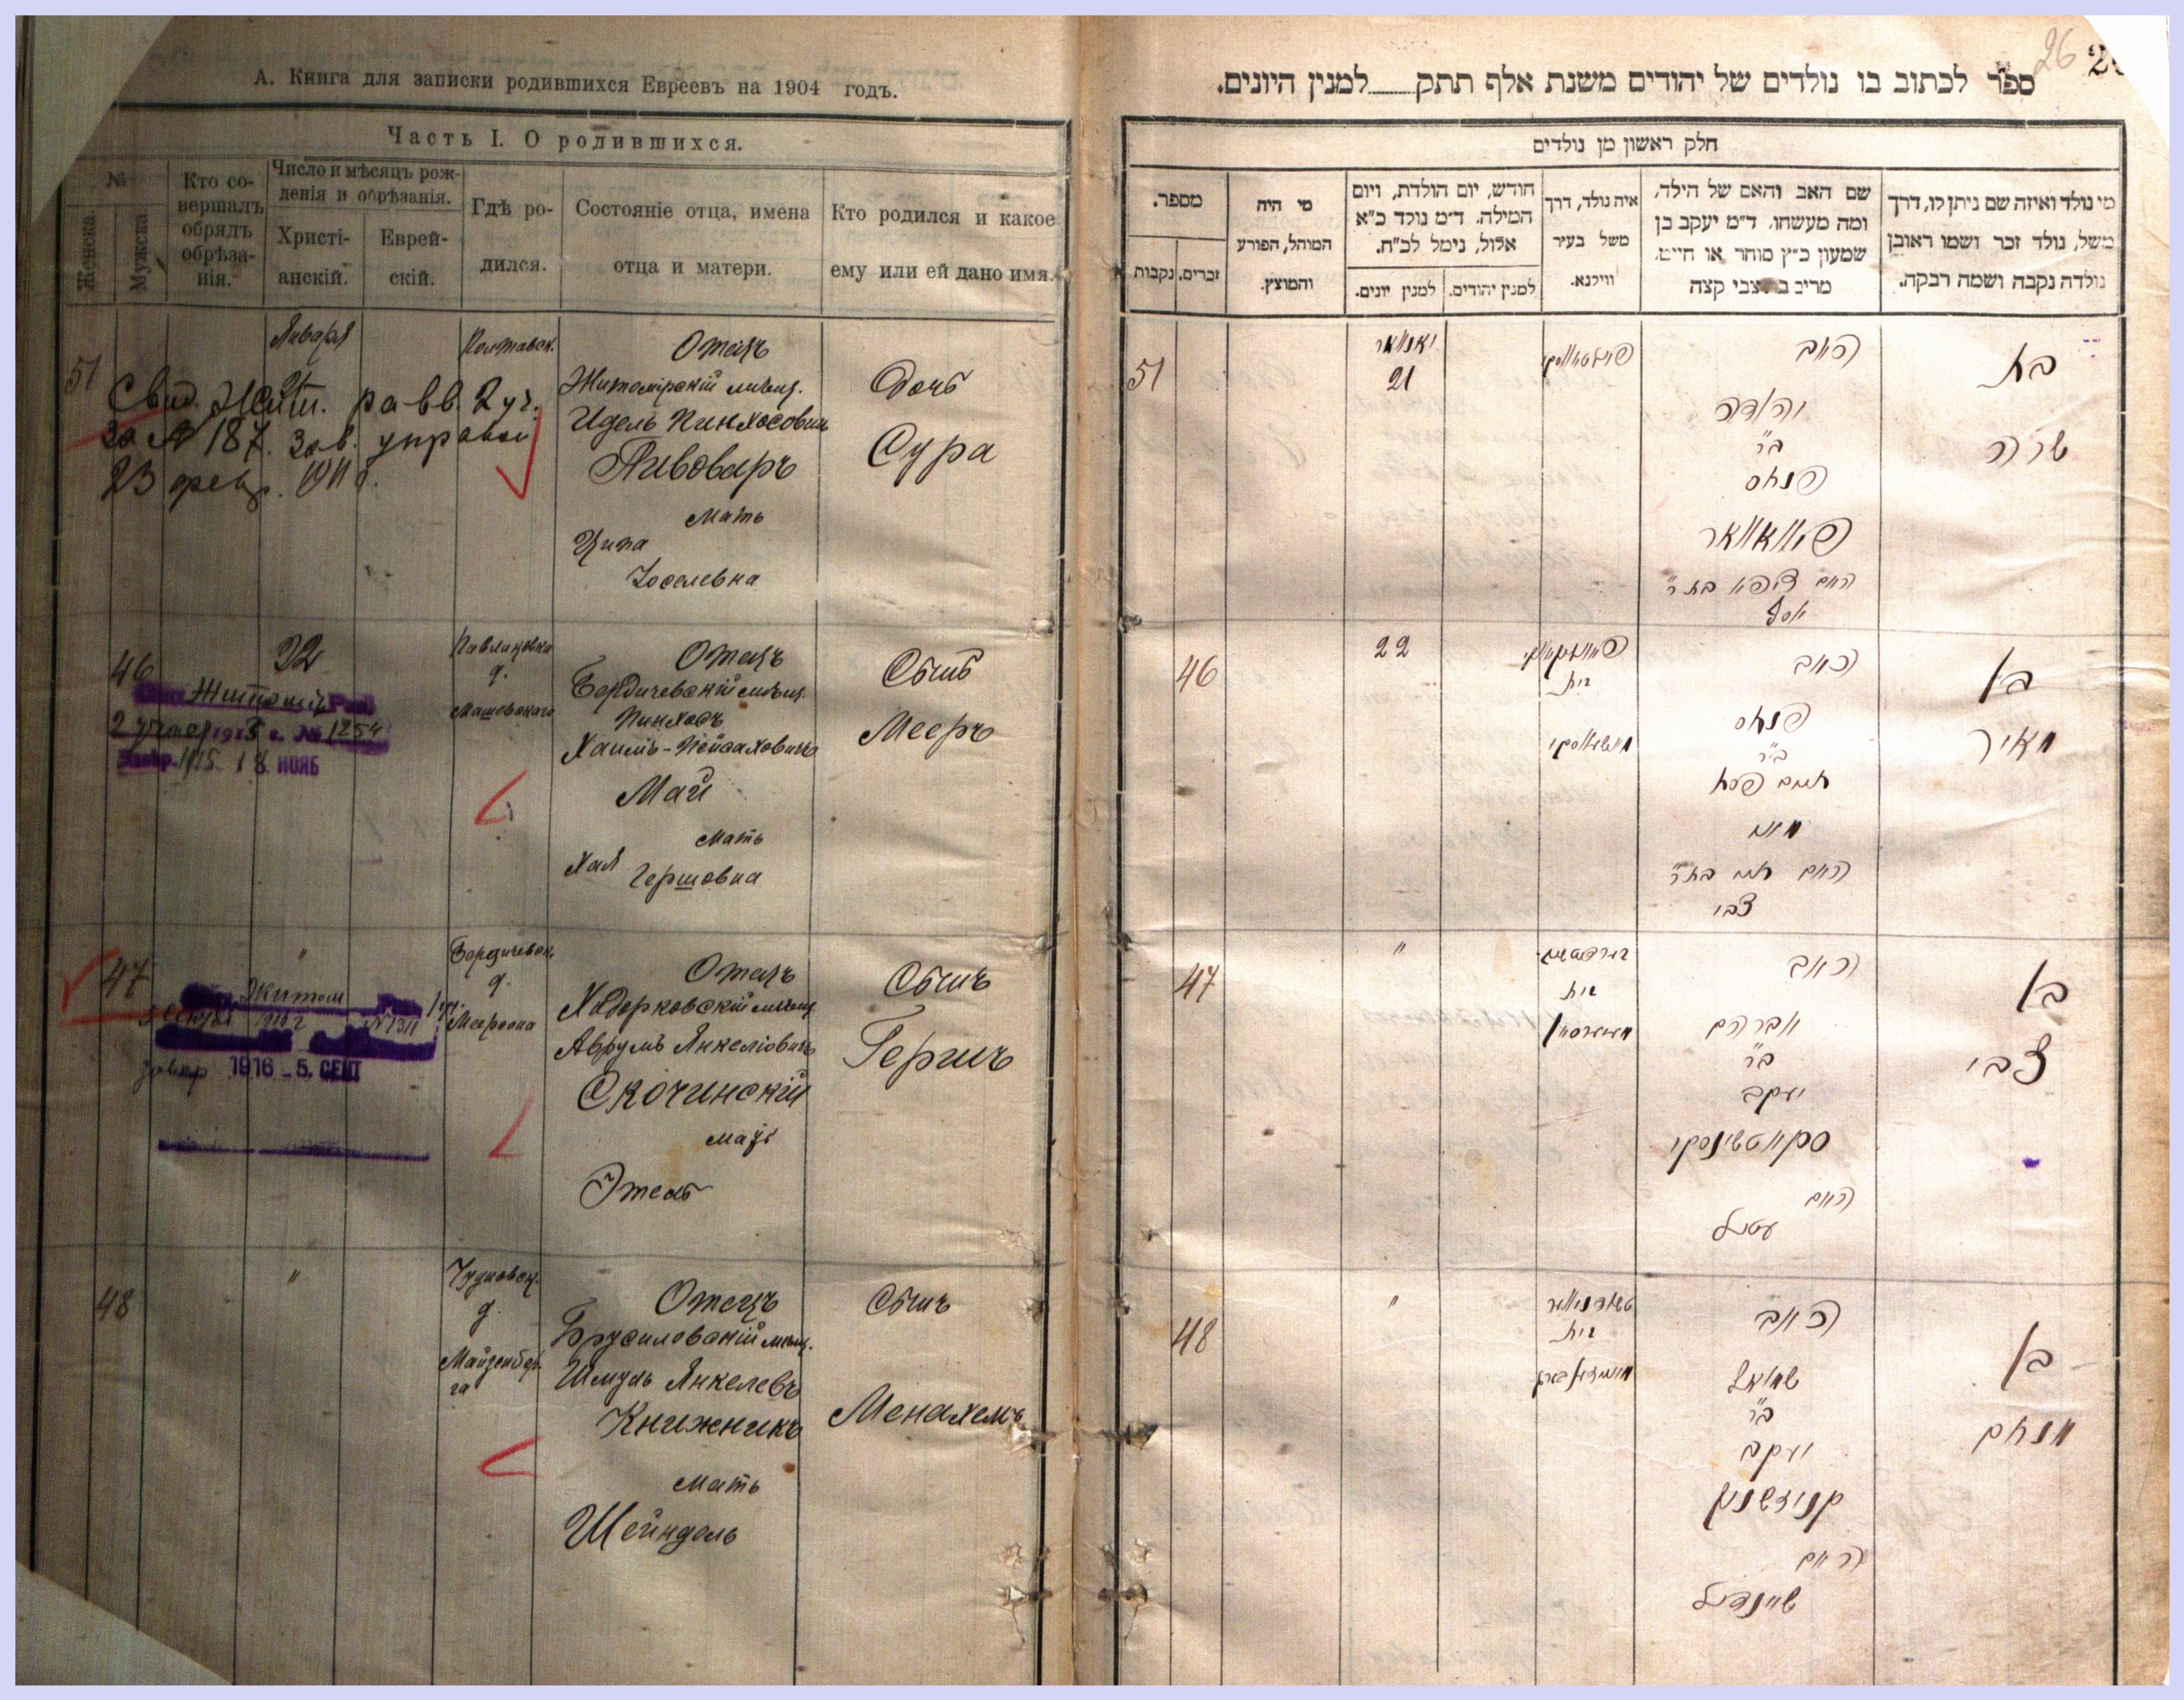 А. Книга для записки родившихся Евреевъ на 1904 годъ.
Часть I. О родившихся.
№
Женска.
Мужска.
Кто со-
вершалъ
обрядъ
обрѣза-
нія.
Число и мѣсяцъ рож-
денія и обрѣзанія.
Христі-
анскій.
Еврей-
скій.
Гдѣ ро-
дился.
Состояніе отца, имена
отца и матери.
Кто родился и какое
ему или ей дано имя.
51
Января
21
Свид. Жит. равв. 2 уч.
за № 187. Зав. управой
23 февр.
Полтавск.
Отецъ
Житомірскій мѣщ.
Идель Пинхосовичъ
Пивоваръ
Мать
Ципа
Іоселевна
Дочь
Сура
46
22
Житомир
2 1915 г. № 1254
1915 18 НОЯБ
д.
Машевскаго
Отецъ
Бердичевскій мѣщ.
Пинхосъ
Хаимъ-Пейсаховичъ
Май
Мать
Хая
Гершовна
Сынъ
Мееръ
47
"
Житом
№ 1311
1916 - 5. СЕНТ
Бердичевск.
д.
Меерсона
Отецъ
Ходорковскій мѣщ.
Аврумъ Янкеліовичъ
Скочинскій
Мать
Этель
Сынъ
Гершъ
48
"
Чудновск.
д.
Майзенбер
га
Отецъ
Брусиловскій мѣщ.
Шмуль Янкелевъ
Книжникъ
Мать
Шейндель
Сынъ
Менахемъ
26
ספר לכתוב בו נולדים של יהודים משנת אלף תתק למנין היונים.
חלק ראשון מן נולדים
מספר.
זכרים.
נקבות
מי היה
המוהל, הפורע
והמוצץ.
חודש, יום הולדת, ויום
המילה. ד״מ נולד כ״א
אלול, נימל לכ״ח.
למנין יהודים.
למנין יונים.
איה נולד, דרך
משל בעיר
ווילנא.
שם האב והאם של הילד,
ומה מעשהו. ד״מ יעקב בן
שמעון כ״ץ סוחר או חייט,
מי נולד ואיזה שם ניתן לו, דרך
משל, נולד זכר ושמו ראובן
נולדה נקבה ושמה רבקה.
51
יאנואר
21
האב
יהודה
ב״ר
פנחס
פיוואוואר
האם ציפא בת ר׳
בת
שרה
46
22
בית
האב
פנחס
ב״ר
חיים פסח
מיי
האם חיה בת ר׳
צבי
בן
מאיר
47
"
בית
האב
אברהם
ב״ר
יעקב
סקוטשינסקי
האם
עטיל
בן
צבי
48
"
בית
האב
שמואל
ב״ר
יעקב
קניזשניק
האם
שיינדיל
בן
מנחם